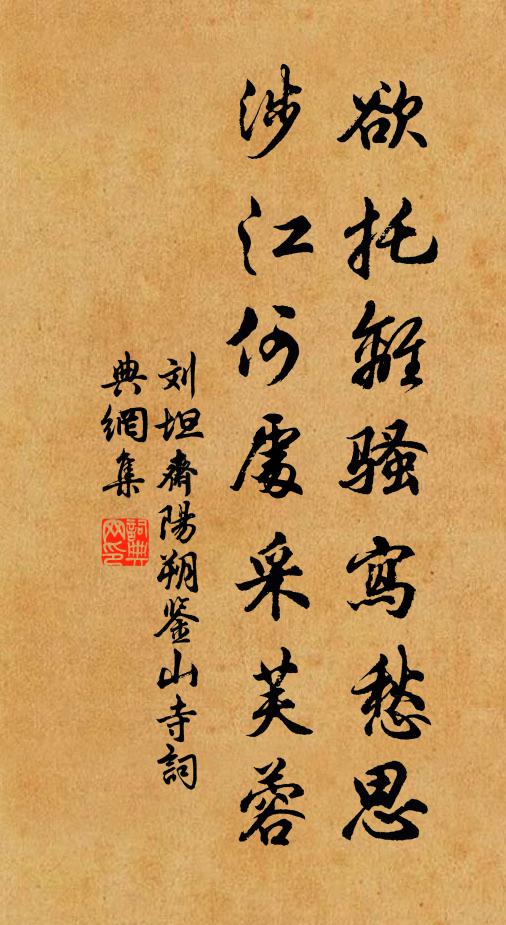 欲托離騷寫愁思
涉江何處采芙蓉
刘坦齋陽朔鉴山寺詞
典網集
詞典网印